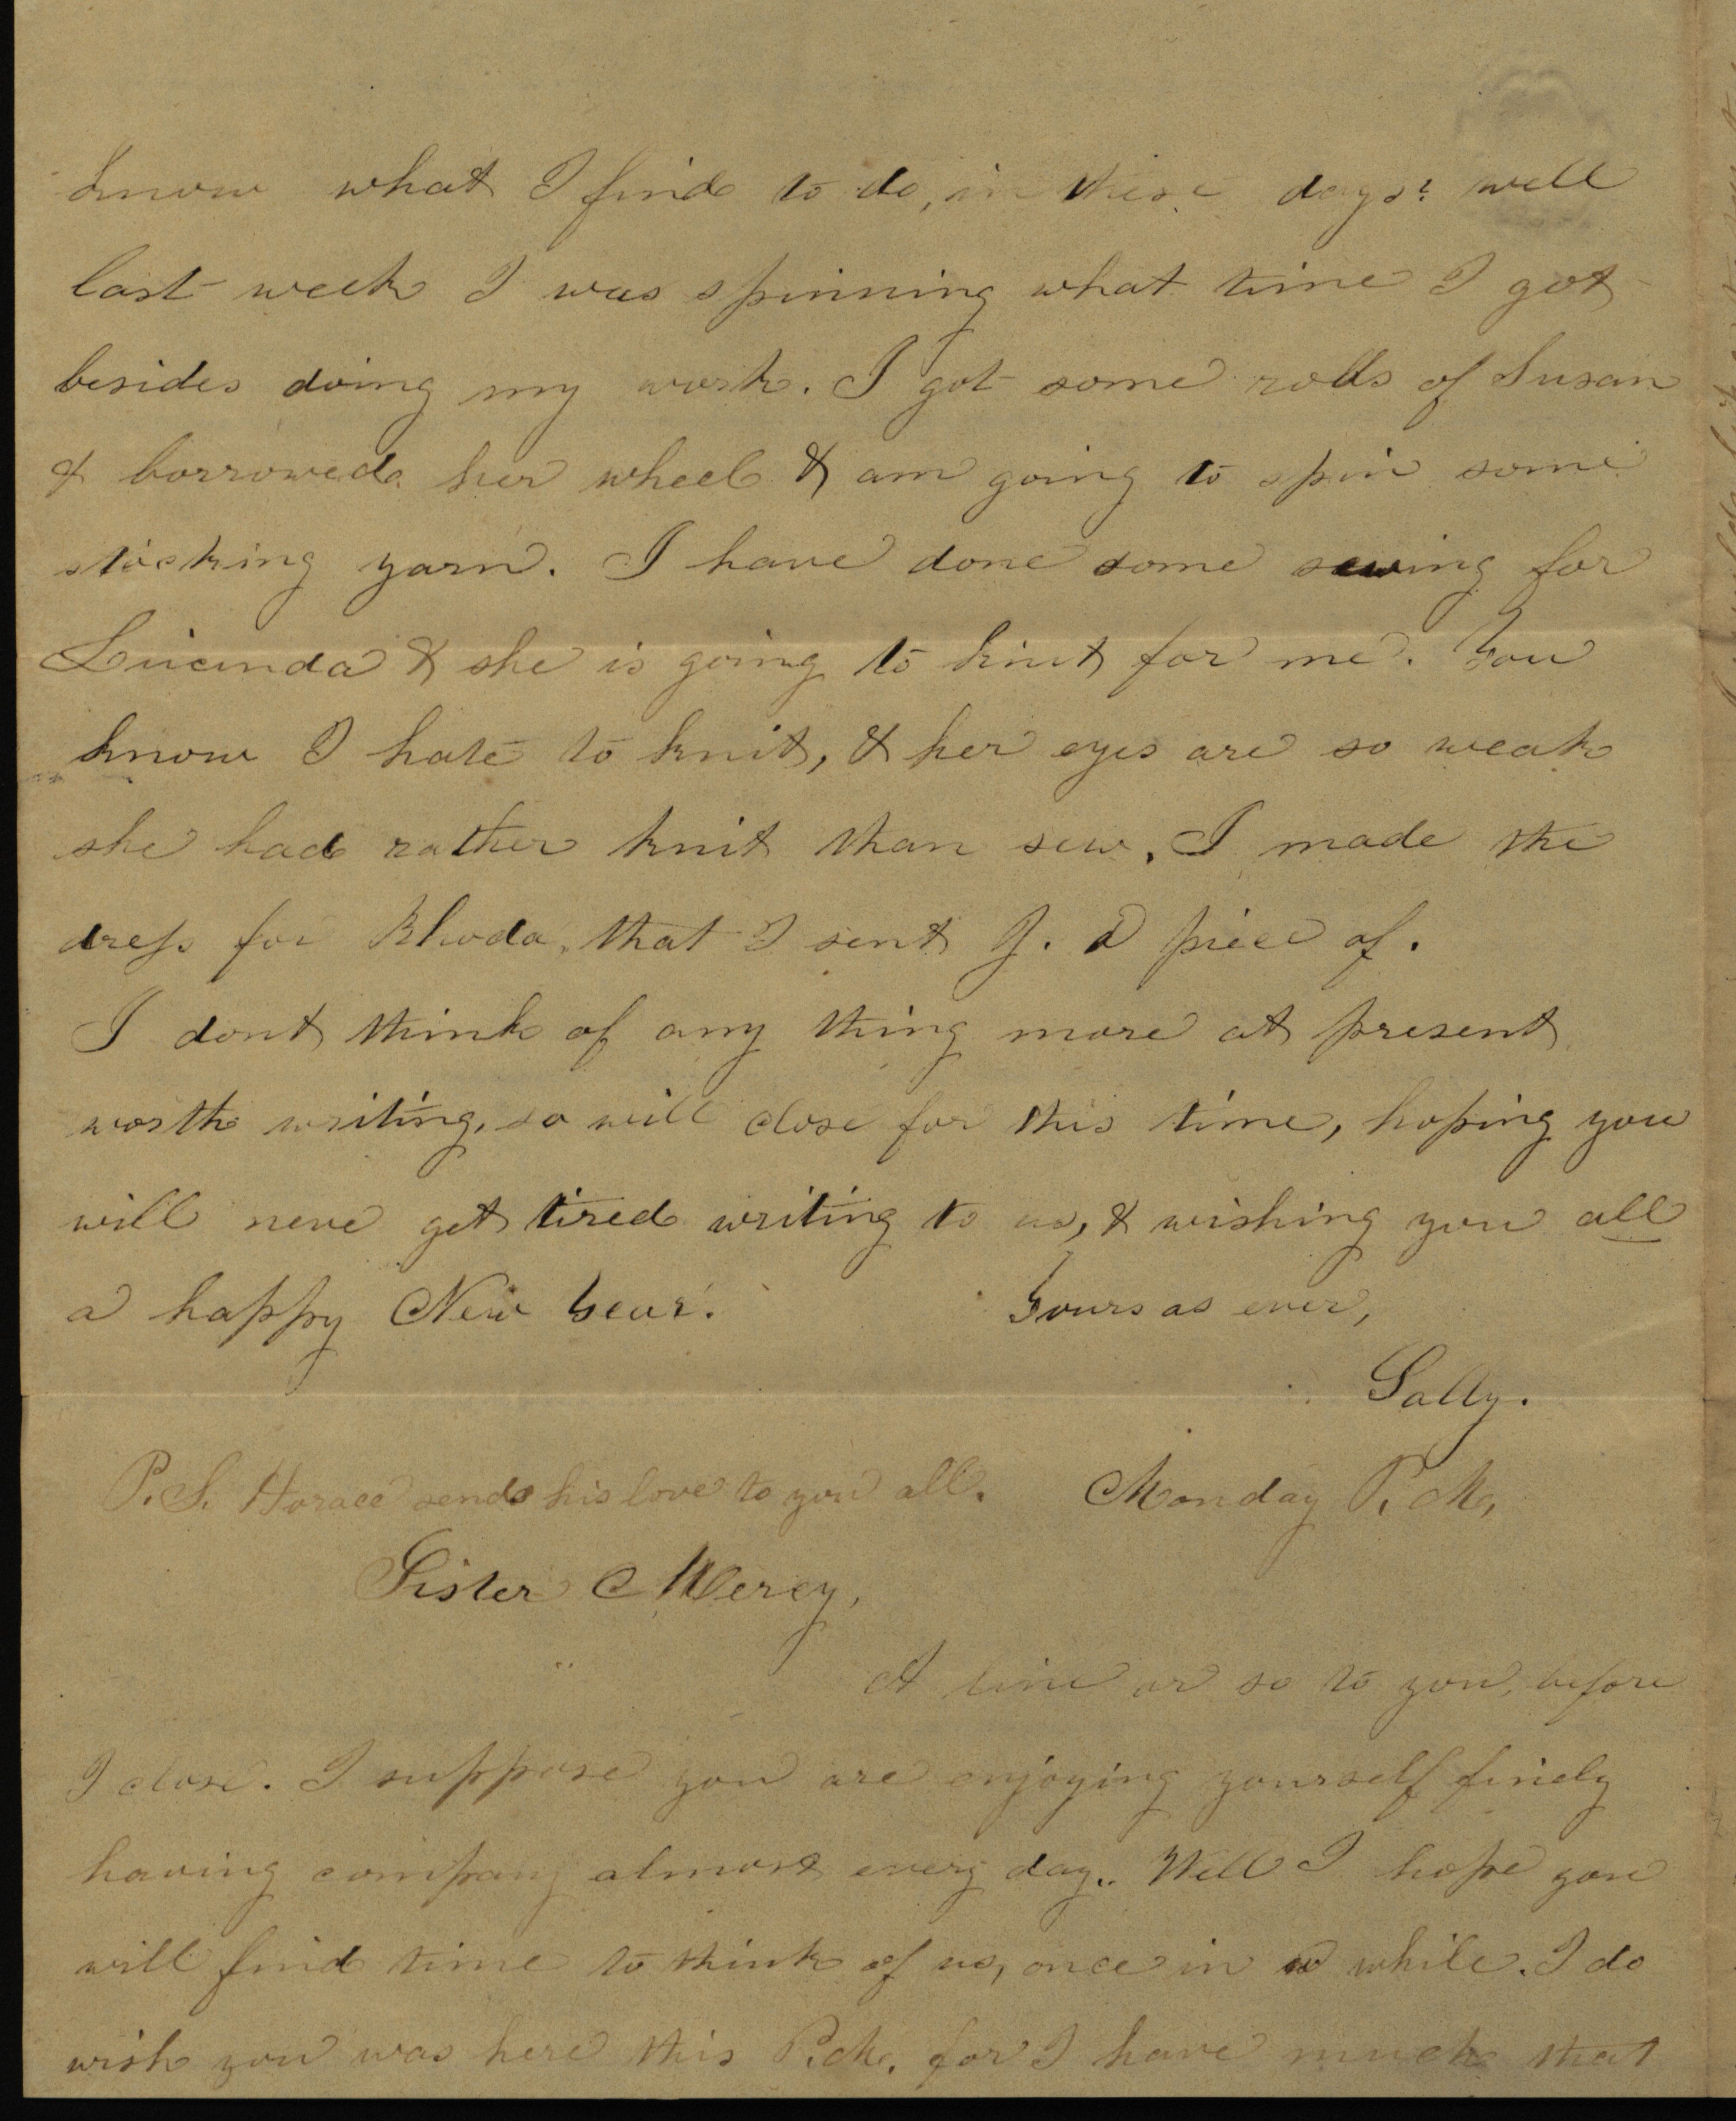 know what I find to do, in these days? well
last week I was spinning what time I got
besides doing my work. I got some rolls of Susan
& borrowed her wheel & am going to spin some
stocking yarn. I have done some sewing for
Lucinda & she is going to knit for me. You
know I hate to knit, & her eyes are so weak
she had rather knit than sew. I made the
dress for Rhoda, that I sent J. a piece of.
I dont think of any thing more at present
worth writing, so will close for this time, hoping you
will neve get tired writing to us, & wishing you all
a happy New Year. Yours as ever,
Sally.
P.S. Horace sends his love to you all. Monday P.M.
Sister Mercy,
A line or so to you, before
I close. I suppose you are enjoying yourself finely
having company almost every day.. Well I hope you
will find time to think of us, once in a while. I do
wish you was here this P.M. for I have much that